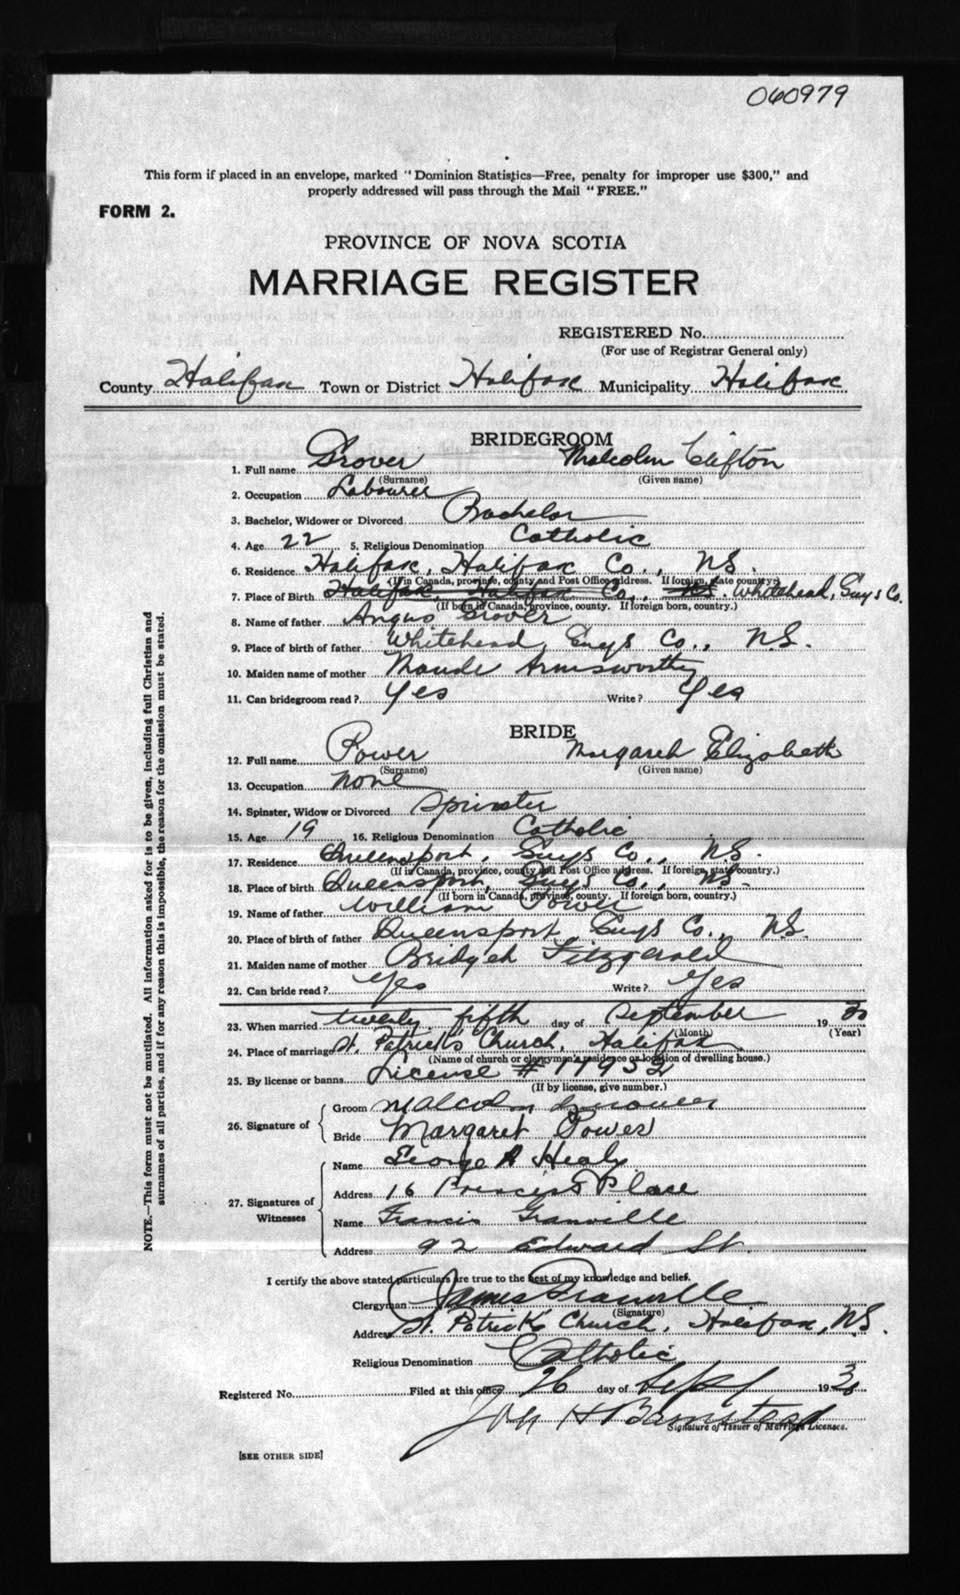 060979
This form if placed in an envelope, marked "Dominion Statistics—Free, penalty for improper use $300," and
properly addressed will pass through the Mail "FREE."
FORM 2.
PROVINCE OF NOVA SCOTIA
MARRIAGE REGISTER
REGISTERED No.
(For use of Registrar General only)
County Halifax Town or District Halifax Municipality Halifax
BRIDEGROOM
1. Full name Grover Malcolm Clifton
(Surname) (Given name)
2. Occupation Labourer
3. Bachelor, Widower or Divorced Bachelor
4. Age 22 5. Religious Denomination Catholic
6. Residence Halifax, Halifax Co., NS.
(If in Canada, province, county and Post Office address. If foreign, state country.)
7. Place of Birth Halifax, Halifax Co., NS. Whitehead, Guys Co.
(If born in Canada, province, county. If foreign born, country.)
8. Name of father Angus Grover
9. Place of birth of father Whitehead, Guys Co., N.S.
10. Maiden name of mother Maude Armsworthy
11. Can bridegroom read? Yes Write? Yes
BRIDE
12. Full name Power Margaret Elizabeth
(Surname) (Given name)
13. Occupation None
14. Spinster, Widow or Divorced Spinster
15. Age 19 16. Religious Denomination Catholic
17. Residence Queensport, Guys Co., N.S.
(If in Canada, province, county and Post Office address. If foreign, state country.)
18. Place of birth Queensport, Guys Co., NS.
(If born in Canada, province, county. If foreign born, country.)
19. Name of father William Power
20. Place of birth of father Queensport, Guys Co., N.S.
21. Maiden name of mother Bridget Fitzgerald
22. Can bride read? Yes Write? Yes
23. When married twenty fifth day of September 19 30
(Month) (Year)
24. Place of marriage St. Patrick's Church, Halifax
(Name of church or clergyman's residence or location of dwelling house.)
25. By license or banns License # 11932
(If by license, give number.)
26. Signature of
Groom Malcolm
Bride Margaret Power
27. Signatures of Witnesses
Name George A Healy
Address 16 Princess Place
Name Francis Granville
Address 92 Edward St.
I certify the above stated particulars are true to the best of my knowledge and belief.
Clergyman James Granville
(Signature)
Address St. Patrick's Church, Halifax, NS.
Religious Denomination Catholic
Registered No. Filed at this office 26 day of Sept 1930
H Barnstead
Signature of Issuer of Marriage Licenses.
[SEE OTHER SIDE]
NOTE.—This form must not be mutilated. All information asked for is to be given, including full Christian and
surnames of all parties, and if for any reason this is impossible, the reason for the omission must be stated.